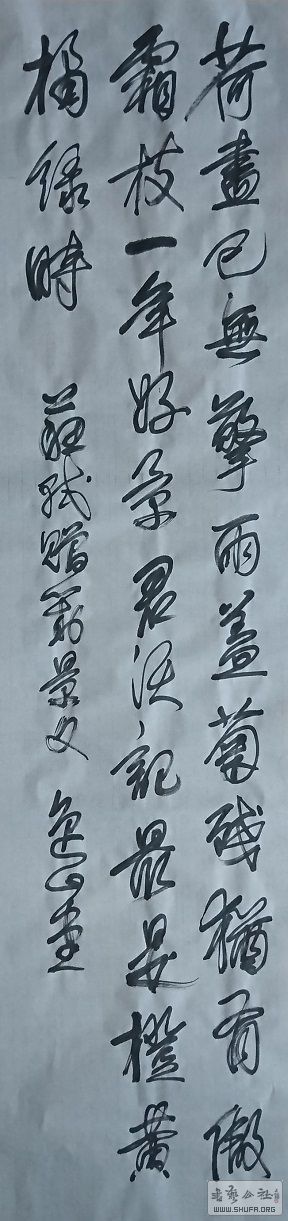 荷盡已無擎雨蓋菊殘猶有傲
霜枝一年好景君須記最是橙黃
橘綠時 蘇軾贈劉景文 山書
书艺公社
WWW.SHUFA.ORG